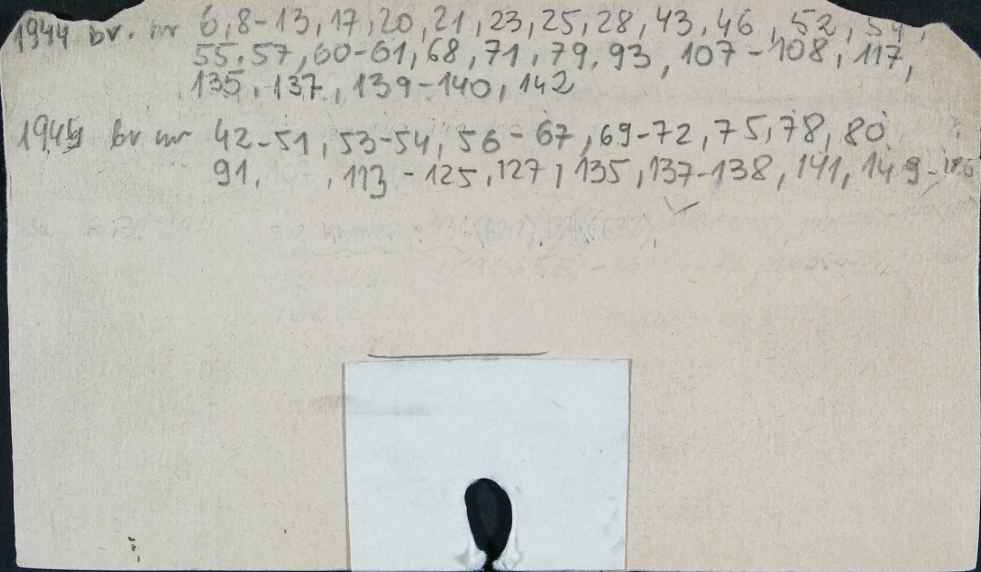 1944 br. nr 6, 8-13, 17, 20, 21, 23, 25, 28, 43, 46, 52, 54,
55, 57, 60-61, 68, 71, 79, 93, 107-108, 117,
135, 137, 139-140, 142
1945 br nr 42-51, 53-54, 56-67, 69-72, 75, 78, 80
91, , 113-125, 127, 135, 137-138, 141, 149-